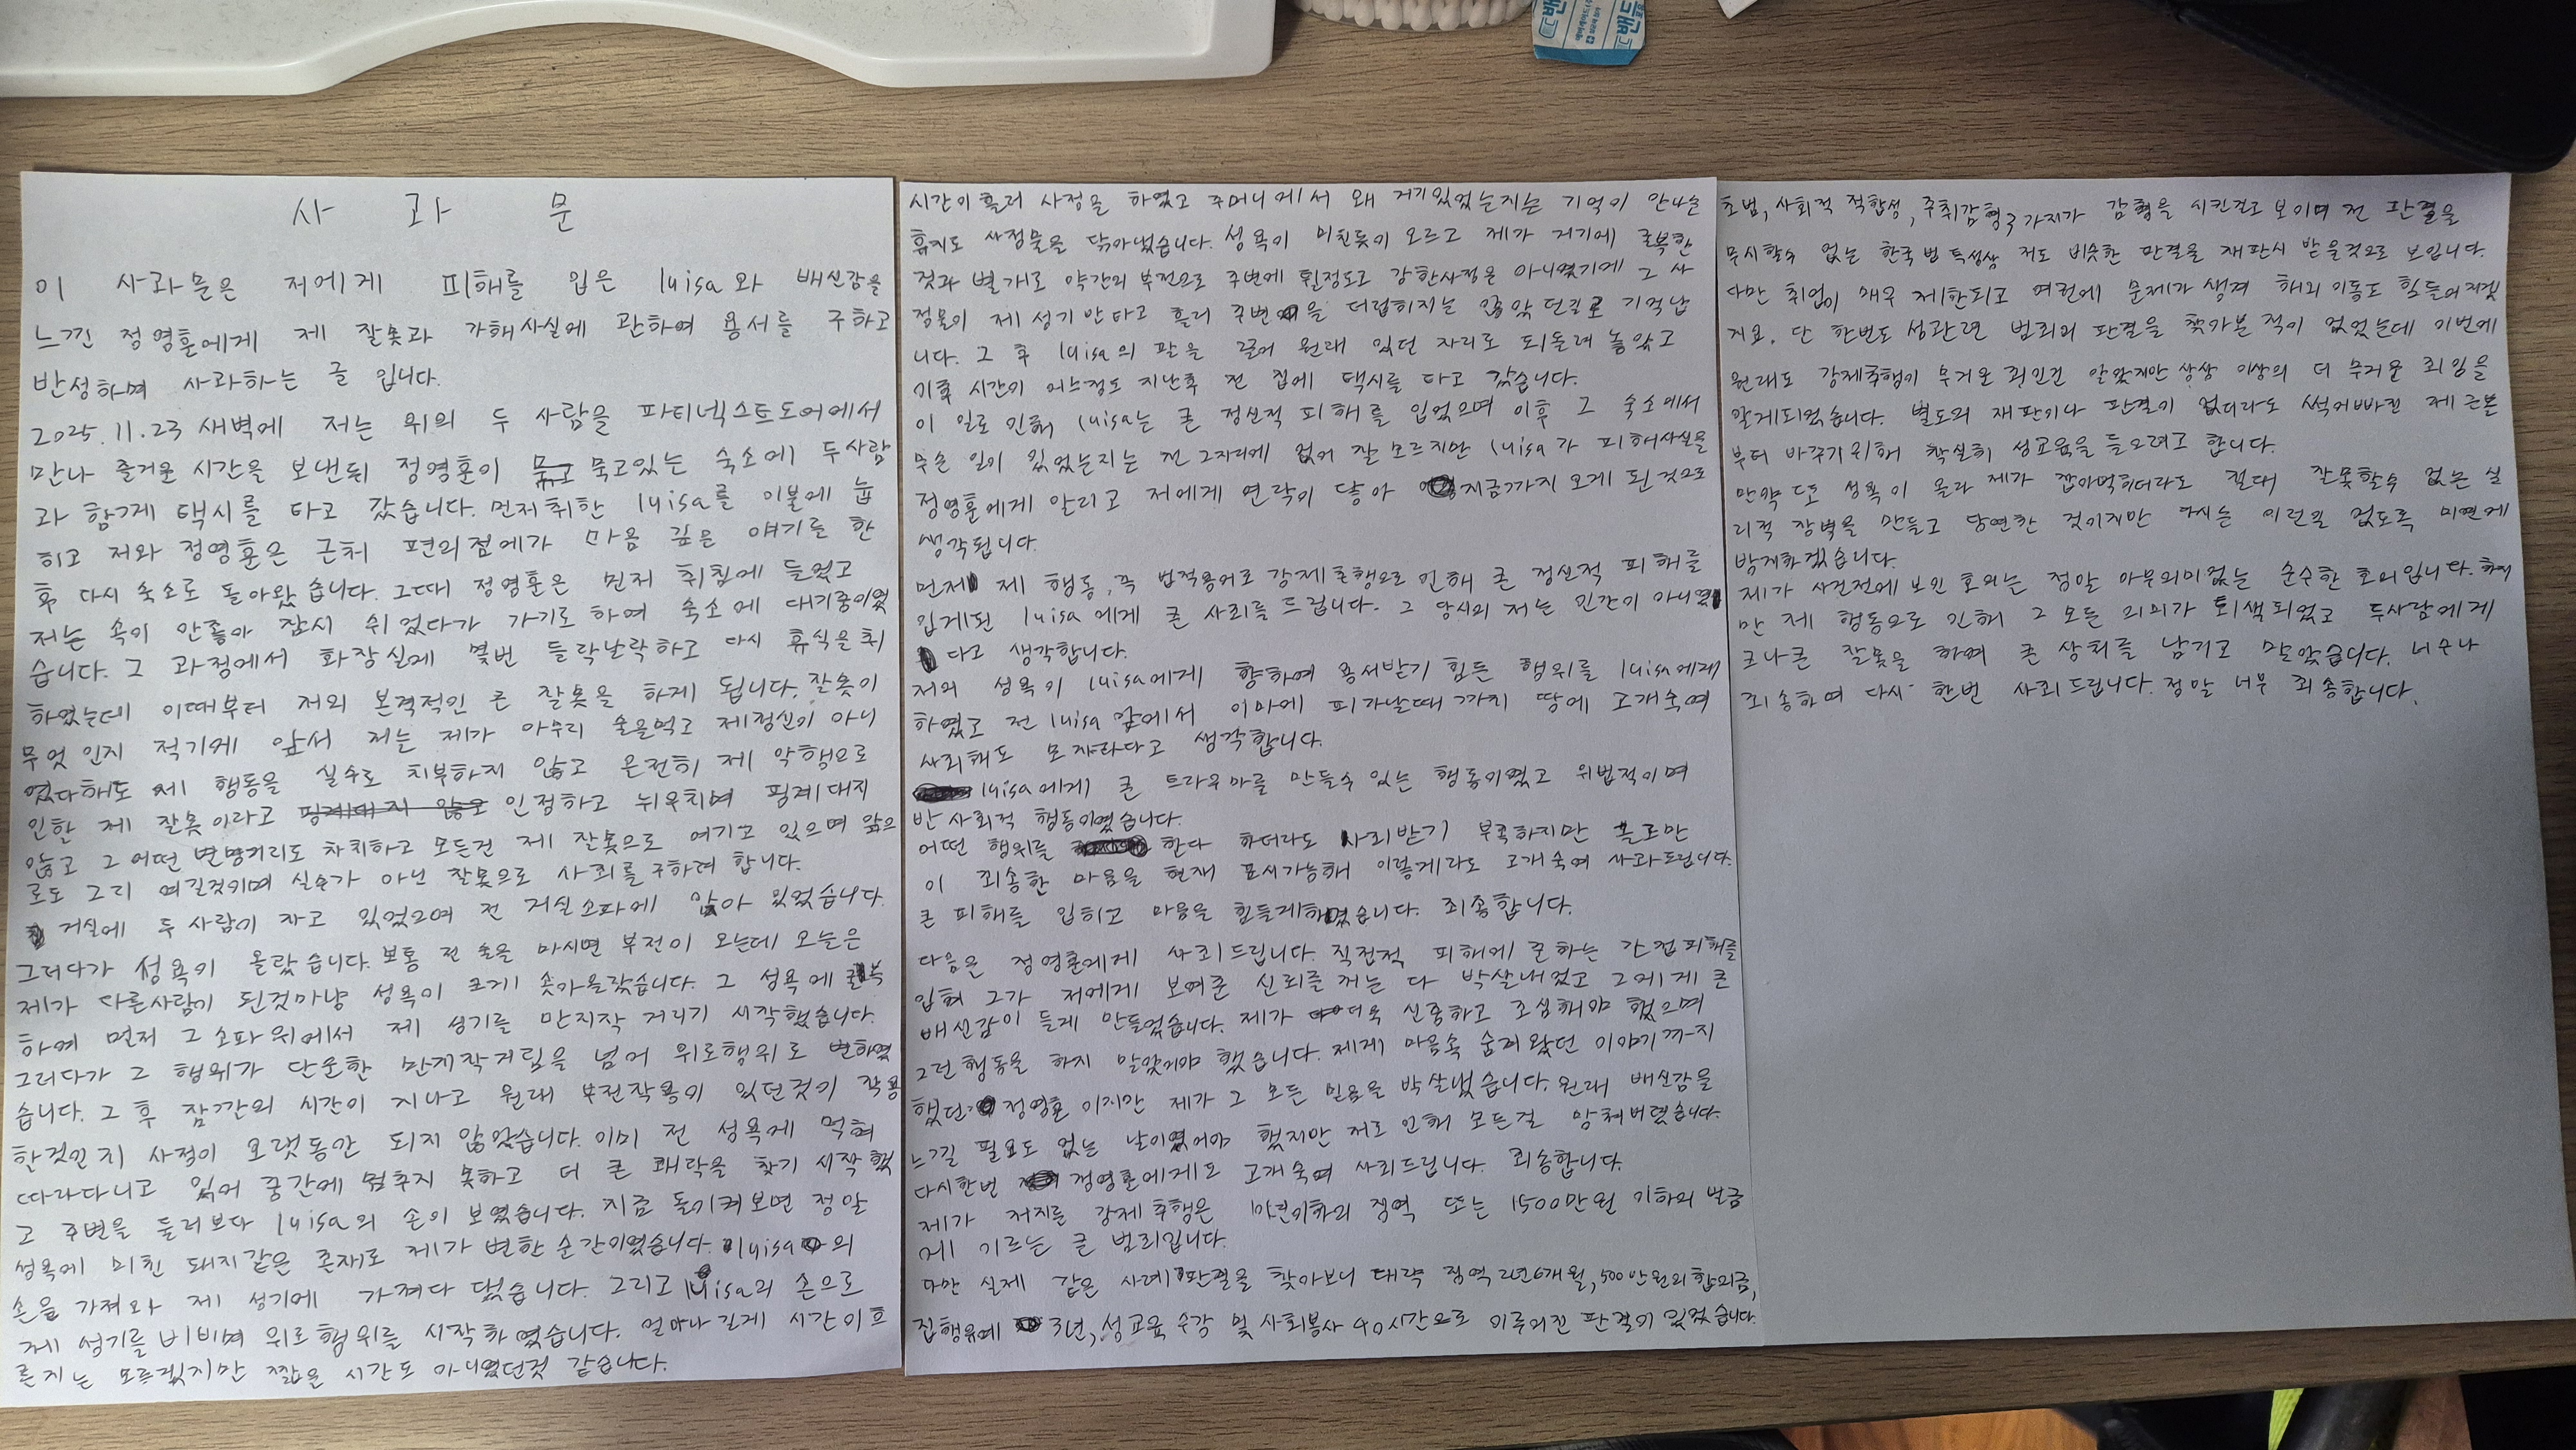 사 과 문
이 사과문은 저에게 피해를 입은 luisa와 배신감을
느낀 정영훈에게 제 잘못과 가해사실에 관하여 용서를 구하고
반성하며 사과하는 글 입니다.
2025.11.23 새벽에 저는 위의 두 사람을 파티넥스트도어에서
만나 즐거운 시간을 보낸뒤 정영훈이 묵고있는 숙소에 두사람
과 함께 택시를 타고 갔습니다. 먼저 취한 luisa를 이불에 눕
히고 저와 정영훈은 근처 편의점에가 마음 깊은 얘기를 한
후 다시 숙소로 돌아왔습니다. 그때 정영훈은 먼저 취침에 들었고
저는 속이 안좋아 잠시 쉬었다가 가기로 하여 숙소에 대기중이였
습니다. 그 과정에서 화장실에 몇번 들락날락하고 다시 휴식을 취
하였는데 이때부터 저의 본격적인 큰 잘못을 하게 됩니다. 잘못이
무엇인지 적기에 앞서 저는 제가 아무리 술을먹고 제정신이 아니
었다해도 제 행동을 실수로 치부하지 않고 온전히 제 악행으로
인한 제 잘못이라고 핑계대지 않고 인정하고 뉘우치며 핑계대지
않고 그어떤 변명거리도 차치하고 모든건 제 잘못으로 여기고 있으며 앞으
로도 그리 여길것이며 실수가 아닌 잘못으로 사죄를 구하려 합니다.
거실에 두 사람이 자고 있었으며 전 거실소파에 앉아 있었습니다.
그러다가 성욕이 올랐습니다. 보통 전 술을 마시면 부전이 오는데 오늘은
제가 다른사람이 된것마냥 성욕이 크게 솟아올랐습니다. 그 성욕에 굴복
하여 먼저 그 소파위에서 제 성기를 만지작 거리기 시작했습니다.
그러다가 그 행위가 단순한 만지작거림을 넘어 위로행위로 변하였
습니다. 그 후 잠깐의 시간이 지나고 원래 부전작용이 있던것이 작용
한것인지 사정이 오랫동안 되지 않았습니다. 이미 전 성욕에 먹혀
따라다니고 있어 중간에 멈추지 못하고 더 큰 쾌락을 찾기 시작했
고 주변을 둘러보다 luisa의 손이 보였습니다. 지금 돌이켜보면 정말
성욕에 미친 돼지같은 존재로 제가 변한 순간이였습니다. luisa의
손을 가져와 제 성기에 가져다 댔습니다. 그리고 luisa의 손으로
제 성기를 비비며 위로행위를 시작하였습니다. 얼마나 길게 시간이 흐
른지는 모르겠지만 짧은 시간도 아니였던것 같습니다.
시간이 흘러 사정을 하였고 주머니에서 왜 거기있었는지는 기억이 안나는
휴지로 사정물을 닦아냈습니다. 성욕이 미친듯이 오르고 제가 거기에 굴복한
것과 별개로 약간의 부전으로 주변에 튈정도로 강한사정은 아니였기에 그 사
정물이 제 성기만타고 흘러 주변을 더럽히지는 않았던걸로 기억납
니다. 그 후 luisa의 팔을 끌어 원래 있던 자리로 되돌려 놓았고
이후 시간이 어느정도 지난후 전 집에 택시를 타고 갔습니다.
이 일로 인해 luisa는 큰 정신적 피해를 입었으며 이후 그 숙소에서
무슨 일이 있었는지는 전 그자리에 없어 잘 모르지만 luisa가 피해사실을
정영훈에게 알리고 저에게 연락이 닿아 지금까지 오게 된것으로
생각됩니다.
먼저 제 행동, 즉 법적용어로 강제추행으로 인해 큰 정신적 피해를
입게된 luisa에게 큰 사죄를 드립니다. 그 당시의 저는 인간이 아니였
다고 생각합니다.
저의 성욕이 luisa에게 향하여 용서받기 힘든 행위를 luisa에게
하였고 전 luisa 앞에서 이마에 피가날때 까지 땅에 고개숙여
사죄해도 모자라다고 생각합니다.
luisa에게 큰 트라우마를 만들수 있는 행동이였고 위법적이며
반사회적 행동이였습니다.
어떤 행위를 한다 하더라도 사죄받기 부족하지만 글로만
이 죄송한 마음을 현재 표시가능해 이렇게라도 고개숙여 사과드립니다.
큰 피해를 입히고 마음을 힘들게하였습니다. 죄송합니다.
다음은 정영훈에게 사죄드립니다. 직접적 피해에 준하는 간접피해를
입혀 그가 저에게 보여준 신뢰를 저는 다 박살내었고 그에게 큰
배신감이 들게 만들었습니다. 제가 더욱 신중하고 조심해야 했으며
그런행동을 하지 말았어야 했습니다. 제게 마음속 숨겨왔던 이야기까지
했던 정영훈 이지만 제가 그 모든 믿음을 박살냈습니다. 원래 배신감을
느낄 필요도 없는 날이였어야 했지만 저로 인해 모든걸 망쳐버렸습니다.
다시한번 정영훈에게도 고개숙여 사죄드립니다. 죄송합니다.
제가 저지른 강제추행은 10년이하의 징역 또는 1500만원 이하의 벌금
에 이르는 큰 범죄입니다.
다만 실제 같은 사례 판결을 찾아보니 대략 징역 2년6개월, 500만원의 합의금,
집행유예 3년, 성교육 수강 및 사회봉사 40시간으로 이루어진 판결이 있었습니다.
초범, 사회적 적합성, 주취감형 3가지가 감형을 시킨걸로 보이며 전 판결을
무시할수 없는 한국법 특성상 저도 비슷한 판결을 재판시 받을것으로 보입니다.
다만 취업이 매우 제한되고 여권에 문제가 생겨 해외 이동도 힘들어지겠
지요. 단 한번도 성관련 범죄의 판결을 찾아본적이 없었는데 이번에
원래도 강제추행이 무거운 죄인건 알았지만 상상 이상의 더 무거운 죄임을
알게되었습니다. 별도의 재판이나 판결이 없더라도 썩어빠진 제 근본
부터 바꾸기위해 착실히 성교육을 들으려고 합니다.
만약 또 성욕이 올라 제가 잡아먹히더라도 절대 잘못할수 없는 심
리적 장벽을 만들고 당연한 것이지만 다시는 이런일 없도록 미연에
방지하겠습니다.
제가 사건전에 보인 호의는 정말 아무의미없는 순수한 호의입니다. 하지
만 제 행동으로 인해 그 모든 의미가 퇴색되었고 두사람에게
크나큰 잘못을 하여 큰 상처를 남기고 말았습니다. 너무나
죄송하며 다시 한번 사죄드립니다. 정말 너무 죄송합니다.